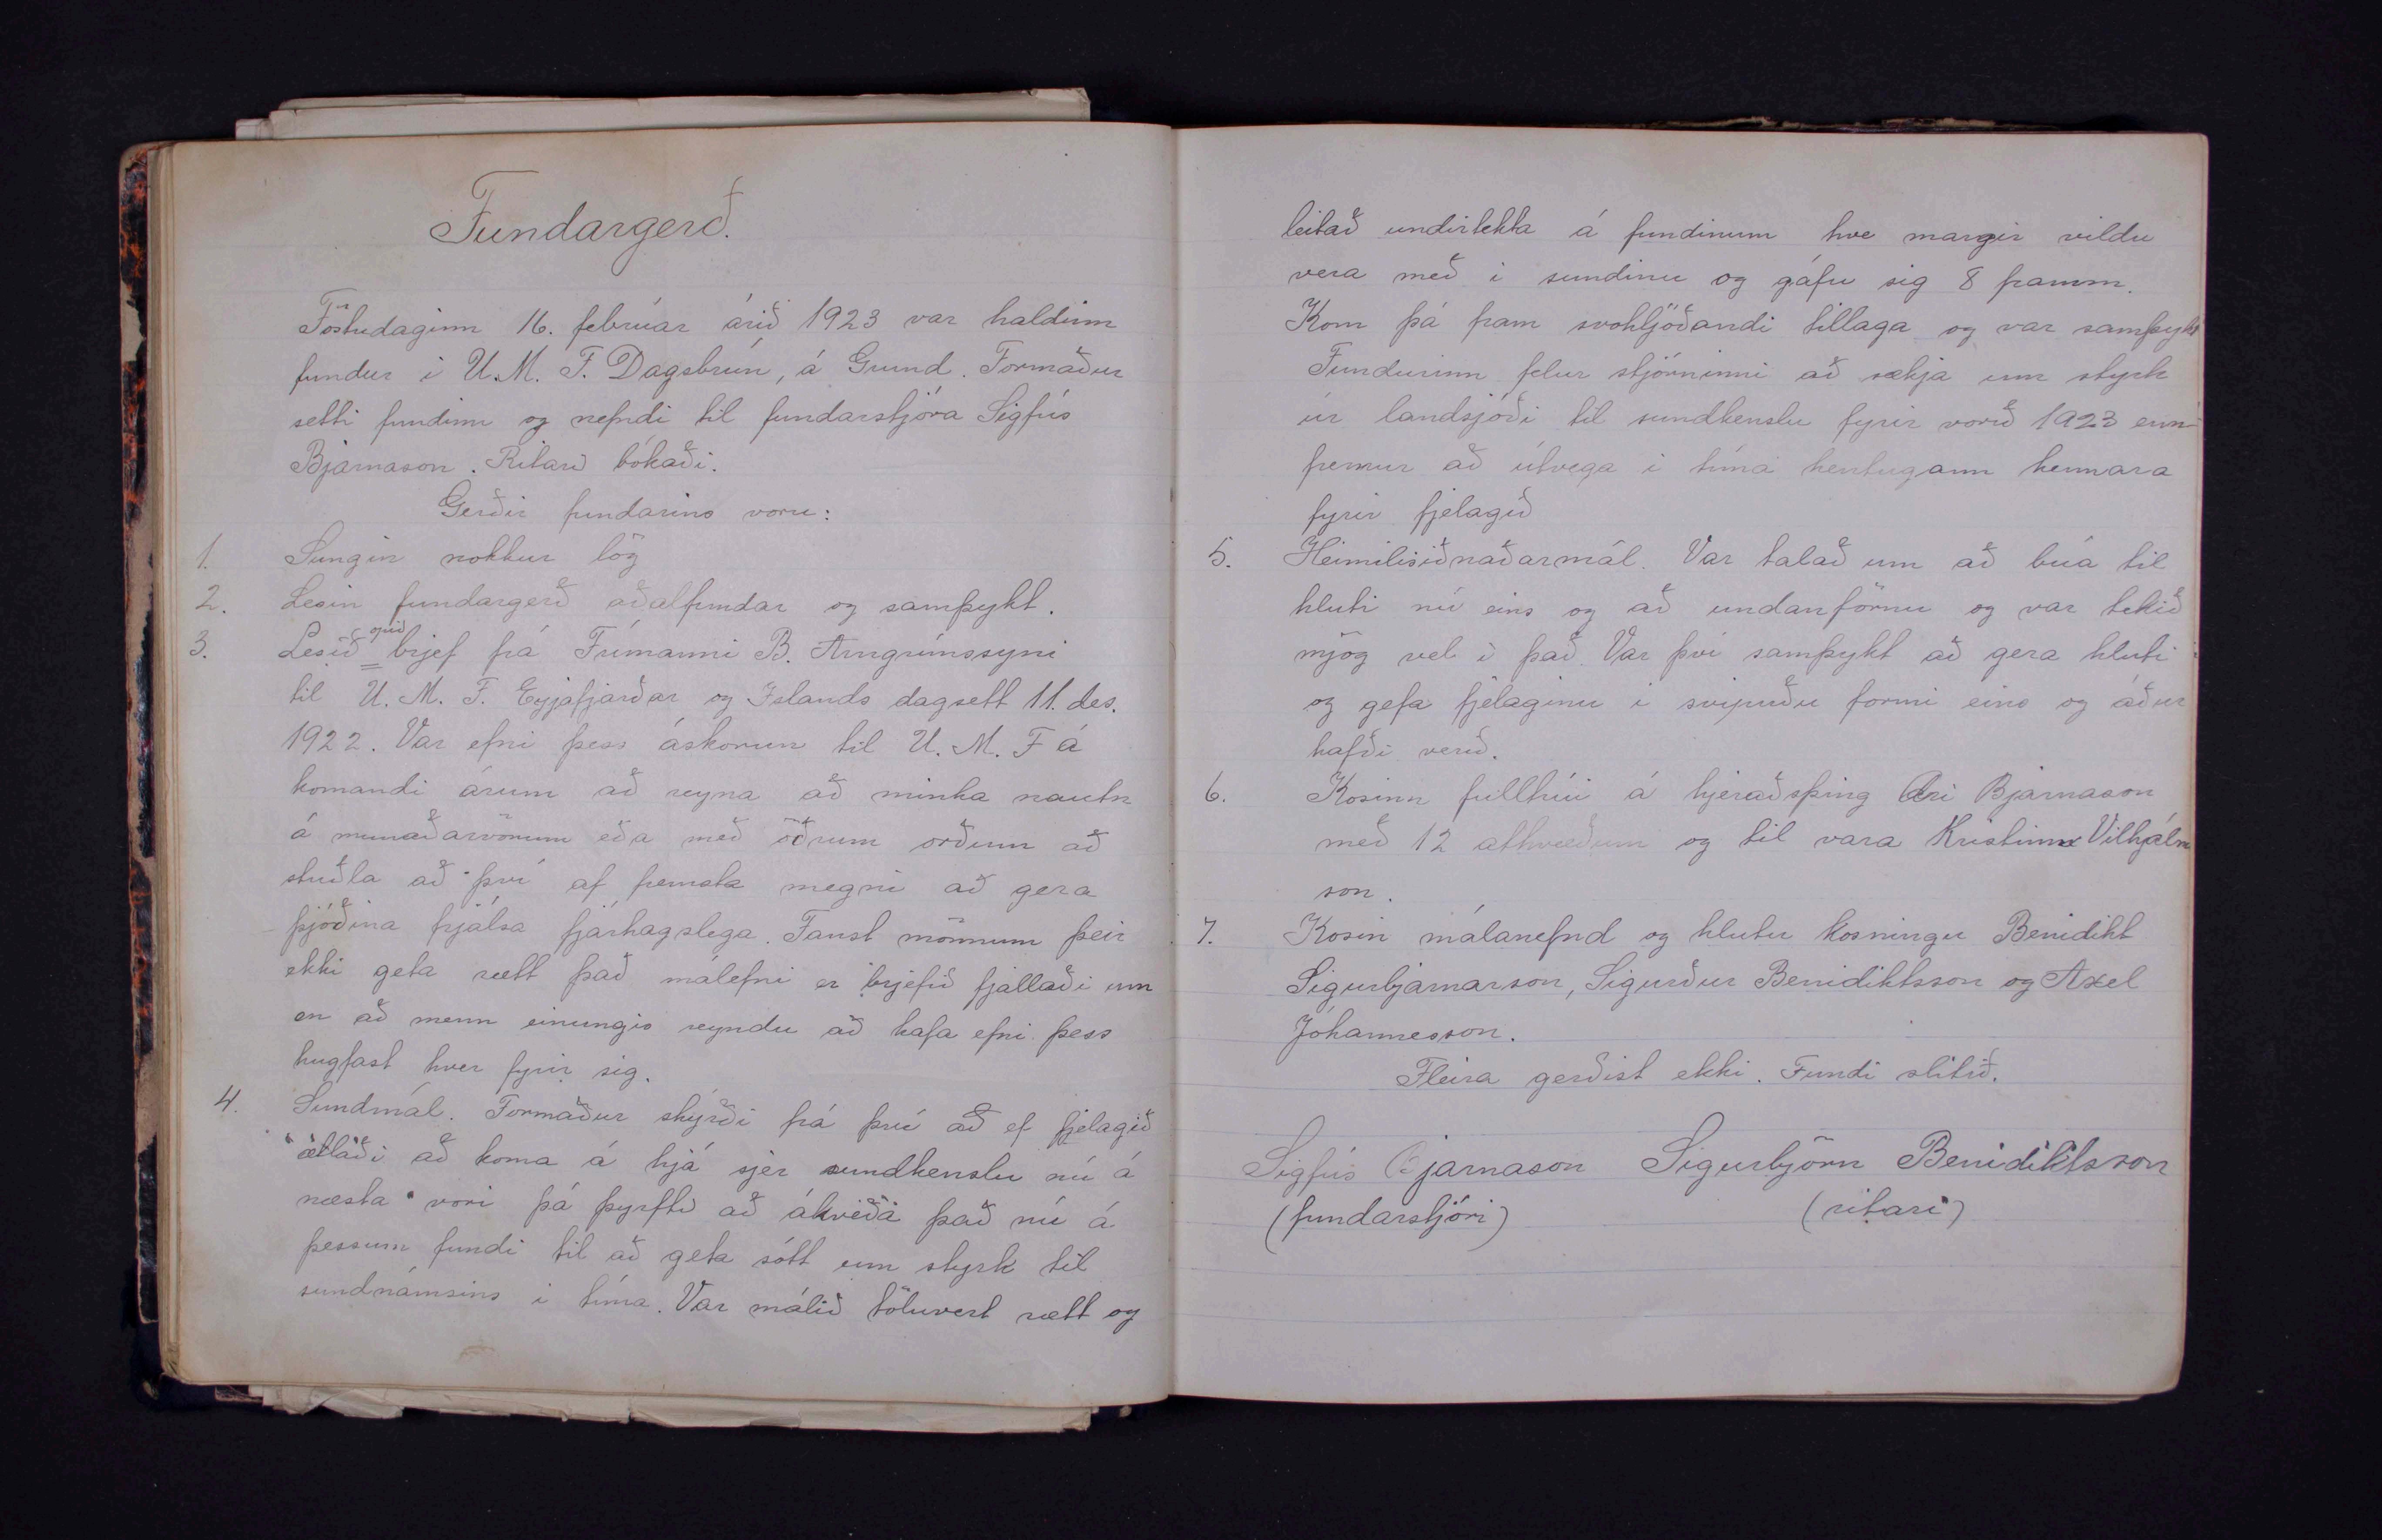 Fundargerð.
Föstudaginn 16. febrúar árið 1923 var haldinn
fundur i U.M.F. Dagsbrún, á Grund. Formaður
setti fundinn og nefndi til fundarstjóra Sigfús
Bjarnason. Ritari bókaði.
Gerðir fundarins voru:
1. Sungin nokkur lög
2. Lesin fundargerð aðalfundar og samþykt.
3. Lesið opið brjef frá Frímanni B. Arngrímssyni
til U.M.F. Eyjafjarðar og Islands dagsett 11. des.
1922. Var efni þess áskorun til U.M.F á
komandi árum að reyna að minka nautn
á munaðarvörum eða með öðrum orðum að
stuðla að því af fremsta megni að gera
þjóðina frjálsa fjárhagslega. Fanst mönnum þeir
ekki geta rætt það málefni er brjefið fjallaði um
en að menn einungis reyndu að hafa efni þess
hugfast hver fyrir sig.
4. Sundmál. Formaður skýrði frá því að ef fjelagið
ætlaði að koma á hjá sjer sundkenslu nú á
næsta vori þá þyrfti að ákveða það nú á
þessum fundi til að geta sótt um styrk til
sundnámsins i tíma. Var málið töluvert rætt og
leitað undirtekta á fundinum hve margir vildu
vera með i sundinu og gáfu sig 8 framm.
Kom þá fram svohljóðandi tillaga og var samþykt
Fundurinn felur stjórninni að sækja um styrk
úr landsjóði til sundkenslu fyrir vorið 1923 enn-
fremur að útvega i tíma hentugann kennara
fyrir fjelagið
5. Heimilisiðnaðarmál. Var talað um að búa til
hluti nú eins og að undanförnu og var tekið
mjög vel i það. Var því samþykt að gera hluti
og gefa fjelaginu i svipuðu formi eins og áður
hafði verið.
6. Kosinn fulltrúi á hjeraðsþing Ari Bjarnason
með 12 atkvæðum og til vara Kristinn Vilhjálm
son.
7. Kosin málanefnd og hlutu kosningu Benidikt
Sigurbjarnarson, Sigurður Benidiktsson og Axel
Jóhannesson.
Fleira gerðist ekki. Fundi slitið.
Sigfús Bjarnason Sigurbjörn Benidiktsson
(fundarstjóri) (ritari)